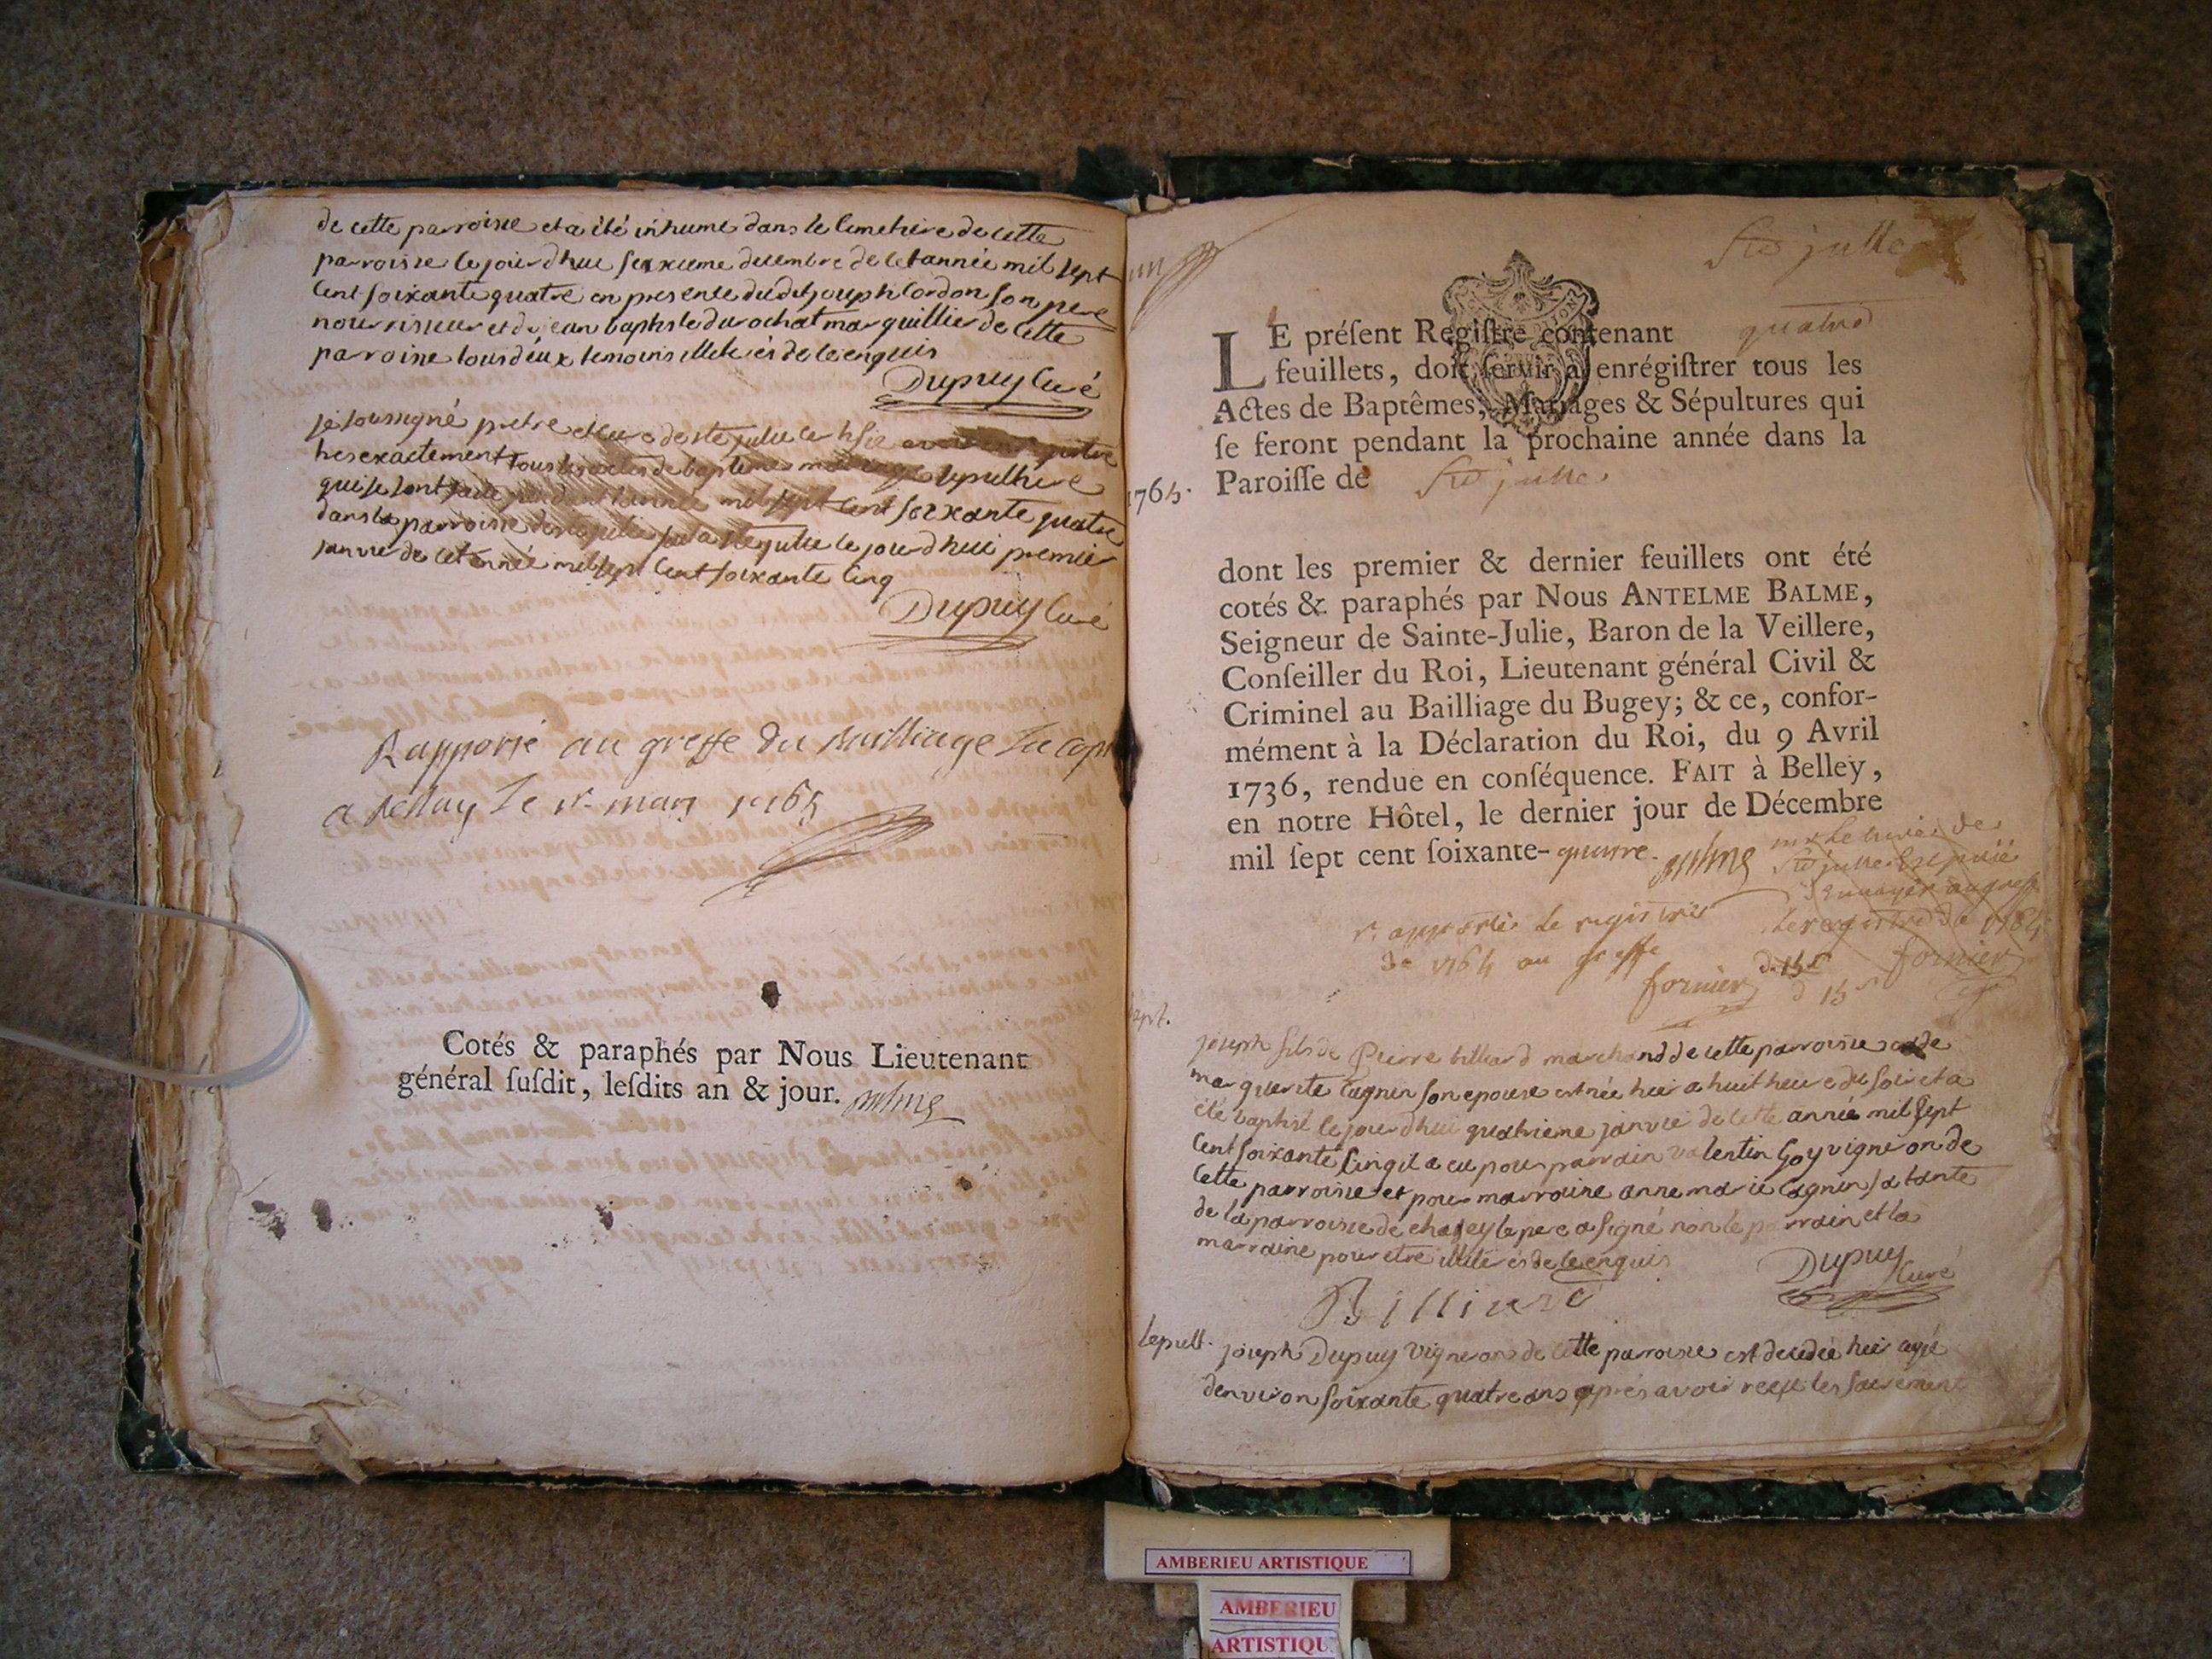 de cette parroisse et a été inhumé dans le cimetiere de cette
parroisse le jourdhui seixieme decembre de cet année mil sept
cent soixante quatre en presence dudit joseph Cordon son pere
nourrisseur et de jean baptiste durochat marguillier de cette
paroisse tous deux temoins illiterés de ce enquis
Dupuy Curé
je soussigné pretre et curé de ste julie certifie
exactement tous les actes de baptemes mariage sepulture
qui se sont pendant l'année mil sept cent soixante quatre
dans la parroisse de ste julie fait a ste julie le jourdhui premier
janvier de cet année mil sept cent soixante cinq
Dupuy Curé
Rapporté au greffe du Bailliage
a Belley le 1r mars 1765
Cotés & paraphés par Nous Lieutenant
général ſuſdit, leſdits an & jour. Balme
Ste julie
LE préſent Regiſtre contenant quatre
feuillets, doit ſervir à enrégiſtrer tous les
Actes de Baptêmes, Mariages & Sépultures qui
ſe feront pendant la prochaine année dans la
Paroiſſe de Ste julie
dont les premier & dernier feuillets ont été
cotés & paraphés par Nous ANTELME BALME,
Seigneur de Sainte-Julie, Baron de la Veillere,
Conſeiller du Roi, Lieutenant général Civil &
Criminel au Bailliage du Bugey; & ce, confor-
mément à la Déclaration du Roi, du 9 Avril
1736, rendue en conſéquence. FAIT à Belley,
en notre Hôtel, le dernier jour de Décembre
mil ſept cent ſoixante-quatre. Balme
mr le curé de
Ste julie Est prié
d'envoyer au greffe
le registre de 1764
fornier
rapportés le registre
de 1764 au greffe
fornier
bapt.
joseph fils de Pierre billiard marchand de cette parroisse et de
marguerite Cagnin son epouse est née hier a huit heure du soir et a
été baptisé le jourdhui quatrieme janvier de cette année mil sept
cent soixante cinq il a eu pour parrain valentin Goy vigneron de
cette parroisse et pour marraine anne marie Cagnin sa tante
de la parroisse de chasey le pere a signé non le parrain et la
marraine pour etre illiterés de ce enquis
Dupuy
Curé
Billiard
sepult.
joseph Dupuy vigneron de cette paroisse est decedée hier agé
denviron soixante quatre ans après avoir reçu les sacrement
AMBERIEU ARTISTIQUE
AMBERIEU
ARTISTIQU